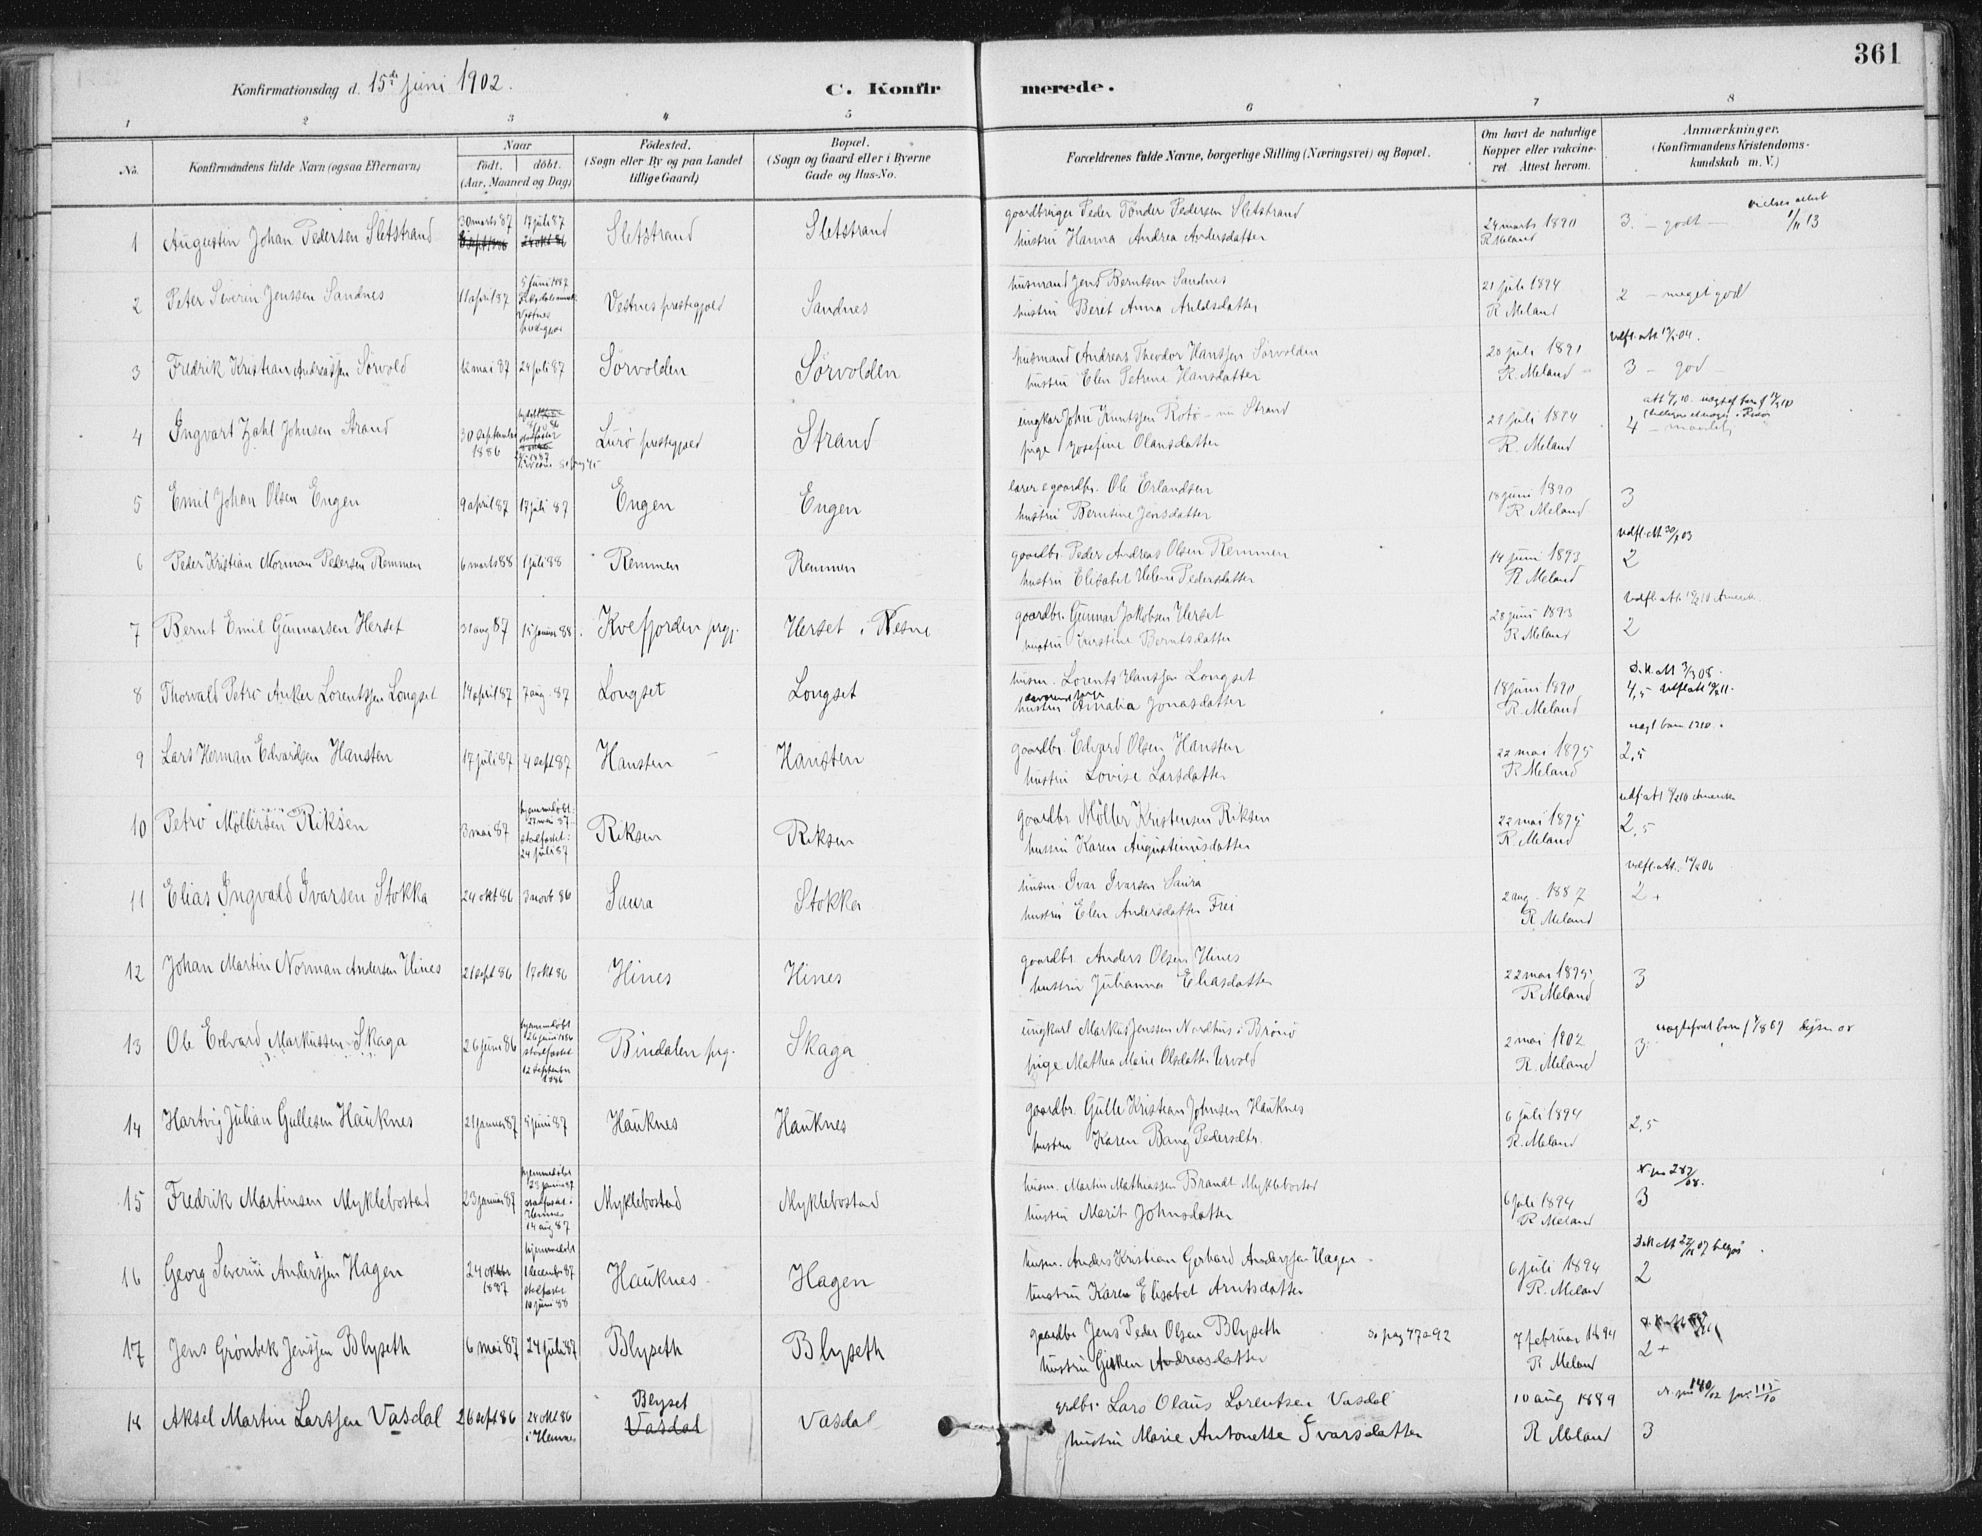 361
Konfirmationsdag d. 15de juni 1902.
C. Konfirmerede.
1 2 3 4 5 6 7 8
No.
Konfirmandens fulde Navn (ogsaa Efternavn)
Naar
født. døbt.
(Aar, Maaned og Dag)
Födested.
(Sogn eller By og paa Landet
tillige Gaard)
Bopæl.
(Sogn og Gaard eller i Byerne
Gade og Hus-No.
Forældrenes fulde Navne, borgerlige Stilling (Næringsvei) og Bopæl.
Om havt de naturlige
Kopper eller vakcine-
ret. Attest herom.
Anmærkninger.
(Konfirmandens Kristendoms-
kundskab m. V.)
1 Augustin Johan Pedersen Sletstrand 30 marts 87 17 juli 87 Sletstrand Sletstrand
gaardbruger Peder Tönder Pedersen Sletstrand
hustru Hanna Andrea Andersdatter
24 marts 1890
R Meland
3. – godt –
2 Peter Severin Jenssen Sandnes 11 april 87 5 juni 1887 Vestnes prestegjæld Sandnes
husmand Jens Berntsen Sandnes
hustru Beret Anna
21 juli 1894
R Meland
2 – meget god
3 Fredrik Kristian Andreassen Sörvold 12 mai 87 24 juli 87 Sörvolden Sörvolden
husmand Andreas Theodor Hanssen Sörvolden
hustru Elen Petrine Hansdatter
20 juli 1891
R. Meland
3 – god –
4 Ingvart Zahl Johnsen Strand 30 september 1886 Lurö prestegjæld Strand
ungkar John Knutssen Rotö – nu Strand
pige Josefine Olausdatter
21 juli 1894
R. Meland
4 –
5 Emil Johan Olsen Engen 9 april 87 17 juli 87 Engen Engen
lærer & gaardbr. Ole Erlandsen
hustru Berntine Jensdatter
18 juni 1890
R Meland
3
6 Peder Kristian Norman Pedersen Remmen 6 marts 88 1 juli 88 Remmen Remmen
gaardbr. Peder Andreas Olsen Remmen
hustru Elisabet Helene Pedersdatter
14 juni 1893
R Meland
2
7 Bernt Emil Gunnarsen Herset 31 aug 87 15 januar 88 Kvefjorden prgj. Herset i Nesne
gaardbr. Gunnar Jakobsen Herset
hustru Karstine Berntsdatter
28 juni 1893
R Meland
2
8 Thorvald Petro Anker Lorentssen Longset 14 april 87 7 aug. 87 Longset Longset
husm. Lorents Hanssen Longset
hustru Amalia Jonasdatter
18 juni 1890
R. Meland
4,5
9 Lars Herman Edvardsen Hansten 17 juli 87 4 sept 87 Hansten Hansten
gaardbr. Edvard Olsen Hansten
hustru Lovise Larsdatter
22 mai 1895
R Meland
2,5
10 Petro Möllersen Riksen 3 mai 87 hjemmedøbt 24 juli 87 Riksen Riksen
gaardbr Möller Kristensen Riksen
hustru Karen Augustinusdatter
22 mai 1895
R. Meland
2,5
11 Elias Ingvald Ivarsen Stokka 24 okt 86 3 novb 86 Saura Stokka
husm. Ivar Ivarsen Saura
hustru Elen Andersdatter Frei
2 aug. 1887
R Meland
2 +
12 Johan Martin Norman Andersen Hines 21 sept 86 17 okt 86 Hines Hines
gaardbr. Anders Olsen Hines
hustru Julianna Eliasdatter
22 mai 1895
R Meland
3
13 Ole Edvard Markussen Skaga 26 juni 86 hjemmedøbt 26 juni 1886 stadfæstet 12 september 1886 Bindalen prg. Skaga
ungkarl Markus Jenssen Nordhus i Brönö
pige Mathea Marie Olsdatter Urvold
2 mai 1902
R. Meland
3
14 Hartvig Julian Gullesen Hauknes 21 januar 87 5 juni 87 Hauknes Hauknes
gaardbr. Gulle Kristian Johnsen Hauknes
hustru Karen Bang Pedersdtr.
6 juli 1894
R. Meland
2,5
15 Fredrik Martinsen Myklebostad 23 januar 87 hjemmedøbt 23 januar 87 stadfæstet i Hemnes 14 aug 87 Myklebostad Myklebostad
husm. Martin Mathiassen Brandt Myklebostad
hustru Marit Johnsdatter
6 juli 1894
R Meland
3
16 Georg Severin Anderssen Hagen 24 oktober 1887 hjemmedøbt 1 december 87 stadfæstet 10 juni 88 Hauknes Hagen
husm. Anders Kristian Gerhard Anderssen Hagen
hustru Karen Elisabet Arntsdatter
6 juli 1894
R. Meland
2
17 Jens Grønbek Jenssen Blyseth 6 mai 87 24 juli 87 Blyseth Blyseth
gaardbr Jens Peder Olsen Blyseth
hustru Gjerken Andreasdatter
7 februar 1894
R Meland
2 +
18 Aksel Martin Larssen Vasdal 26 sept 86 24 okt 86 i Hemnes Blyset Vasdal Vasdal
grdbr. Lars Olaus Lorentsen Vasdal
hustru Marie Antonette Ivarsdatter
10 aug 1889
R Meland
3